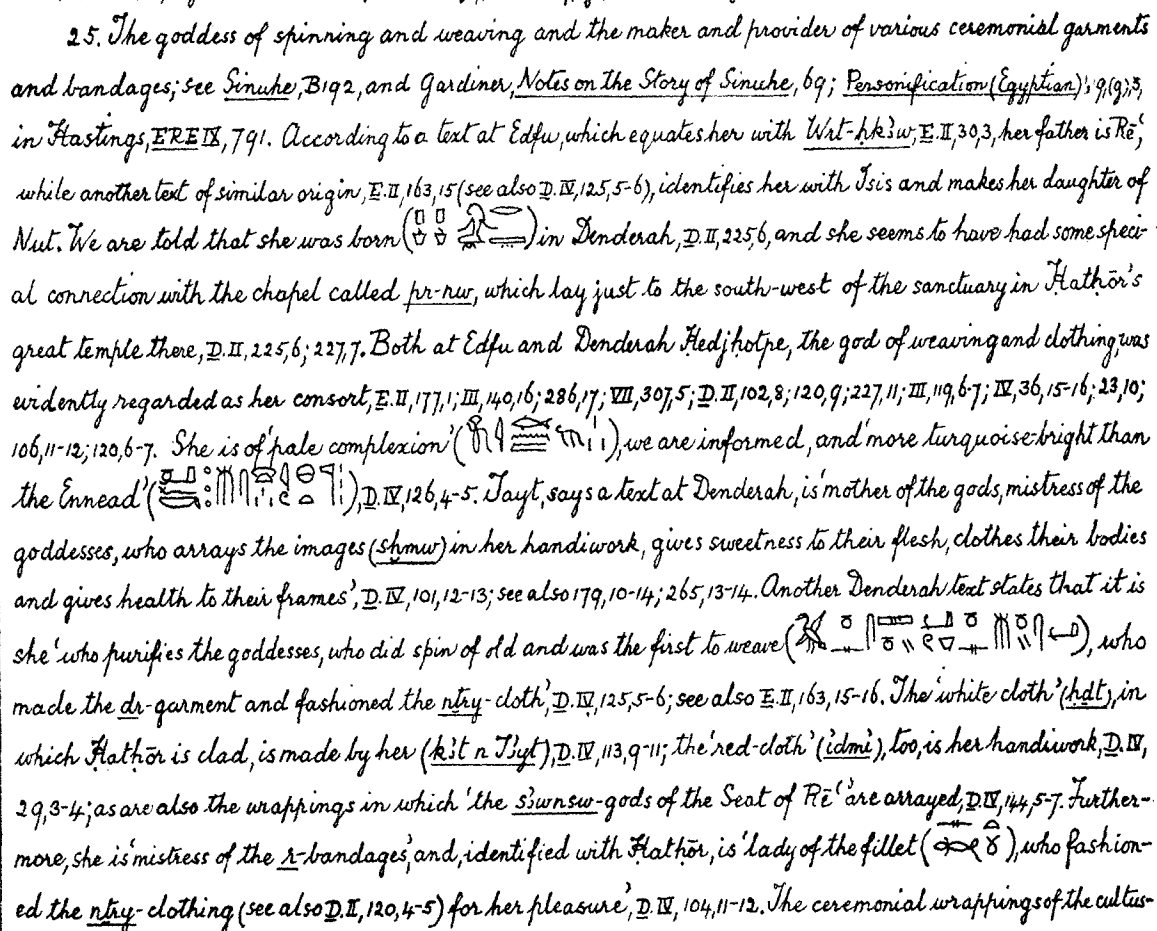 25. The goddess of spinning and weaving and the maker and provider of various ceremonial garments
and bandages; see Sinuhe, B192, and Gardiner, Notes on the Story of Sinuhe, 69; Personification (Egyptian), 9,(g),3,
in Hastings, ERE IX, 791. According to a text at Edfu, which equates her with Wrt-ḥkꜣw, E. II, 30,3, her father is Rēʿ,
while another text of similar origin, E. II, 163, 15 (see also D. IV, 125, 5-6), identifies her with Isis and makes her daughter of
Nut. We are told that she was born ( ) in Denderah, D. II, 225,6, and she seems to have had some speci-
al connection with the chapel called pr-nw, which lay just to the south-west of the sanctuary in Ḥatḥōr's
great temple there, D. II, 225,6; 227,7. Both at Edfu and Denderah Ḥedjḥotpe, the god of weaving and clothing, was
evidently regarded as her consort, E. II, 177,1; III, 140,16; 286,17; VII, 307,5; D. II, 102,8; 120,9; 227,11; III, 119,6-7; IV, 36,15-16; 23,10;
106,11-12; 120,6-7. She is of 'pale complexion' ( ), we are informed, and 'more turquoise-bright than
the Ennead' ( ), D. IV, 126,4-5. Tayt, says a text at Denderah, is 'mother of the gods, mistress of the
goddesses, who arrays the images (sḫmw) in her handiwork, gives sweetness to their flesh, clothes their bodies
and gives health to their frames', D. IV, 101,12-13; see also 179,10-14; 265,13-14. Another Denderah text states that it is
she 'who purifies the goddesses, who did spin of old and was the first to weave ( ), who
made the dr-garment and fashioned the nṯry-cloth', D. IV, 125,5-6; see also E. II, 163, 15-16. The 'white cloth' (ḥḏt), in
which Ḥatḥōr is clad, is made by her (kꜣt n Tꜣyt), D. IV, 113,9-11; the 'red-cloth' (idmi), too, is her handiwork, D. IV,
29,3-4; as are also the wrappings in which 'the sꜣwnsw-gods of the Seat of Rēʿ' are arrayed, D. IV, 144,5-7. Further-
more, she is 'mistress of the r-bandages', and, identified with Ḥatḥōr, is 'lady of the fillet ( ), who fashion-
ed the nṯry-clothing (see also D. II, 120,4-5) for her pleasure', D. IV, 104,11-12. The ceremonial wrappings of the cultus-